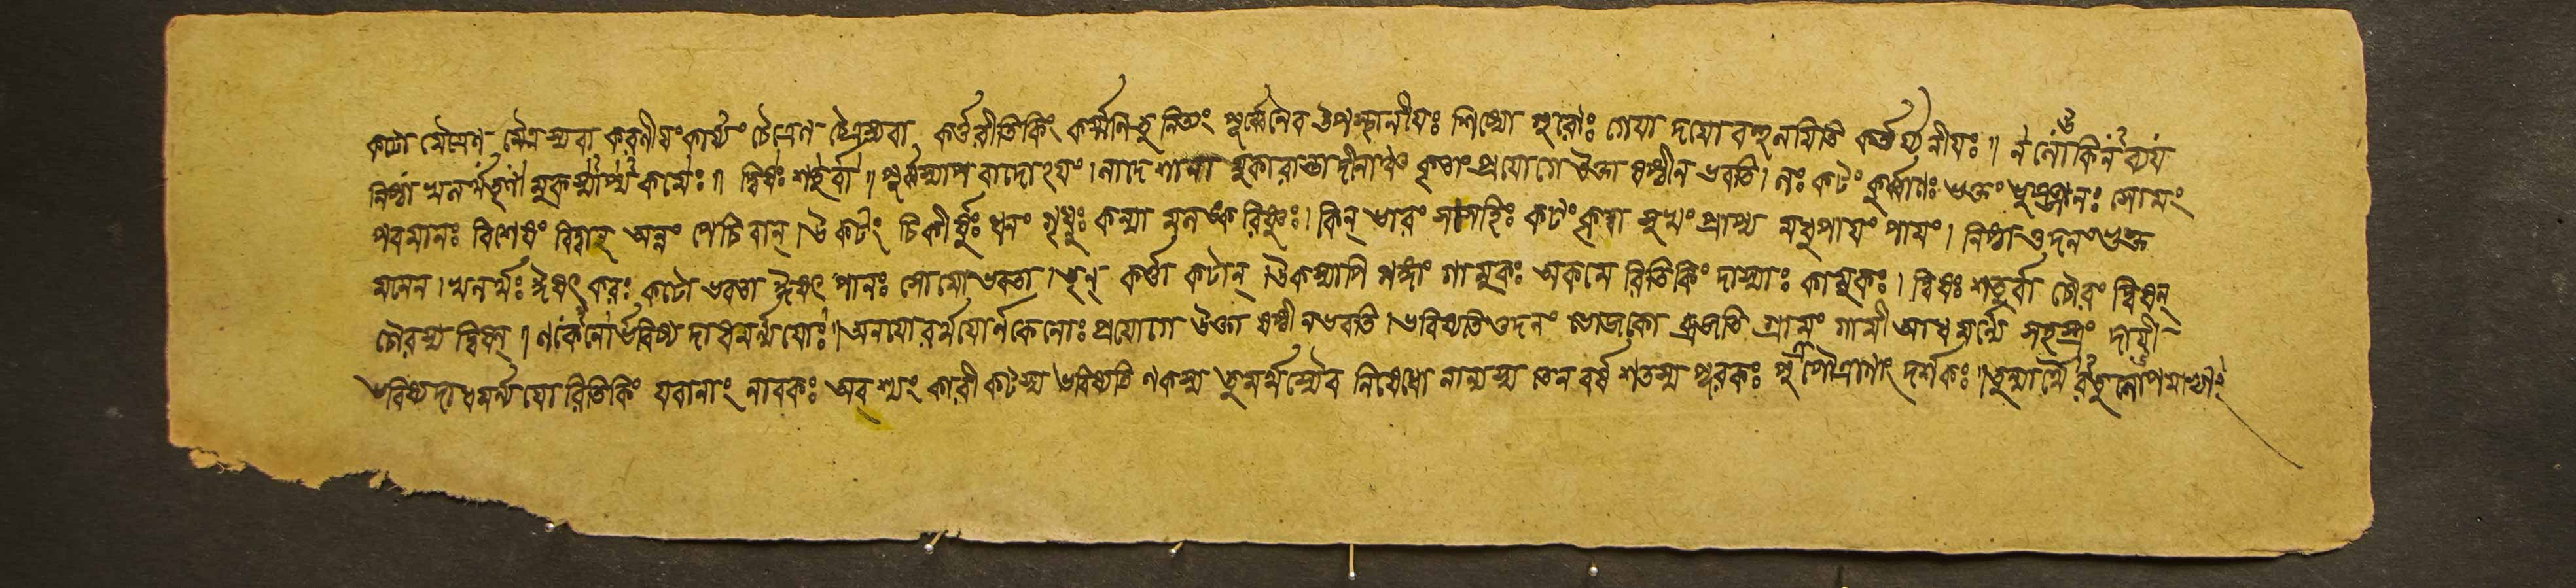 কটো মৈত্রেণ মৈত্রস্য বা করণীযং কার্য্যং চৈত্রেণ চৈত্রস্য বা কর্ত্তরীতি কিং কর্ম্মণি তু নিত্যং পূর্ব্বেণৈব উপস্থানীযঃ শিষ্যো গুরোঃ গেযা দযো বহুলমিতি কর্ত্তর্য্যনীযঃ ॥ ন নো কিন ব্যয
নিষ্ঠা খলর্থতৃণা মুকস্যাপ্য কমেঃ ॥ দ্বিষঃ শতুর্ব্বা ॥ পূর্ব্বস্যাপবাদোঽযং । নাদেশানা মুকারান্তাদীনাঞ্চ কৃতাং প্রযোগে উক্তা ষষ্ঠী ন ভবতি । নঃ কটং কুর্ব্বাণঃ ভুক্তং ভুঞ্জানঃ সোমং
পবমানঃ বিশেষং বিদ্বান্ অন্নং পেচিবান্ । উ কটং চিকীর্ষুঃ ধনং গৃধ্নুঃ কন্যা মলঙ্করিষ্ণুঃ । কিন্ ভারং সাসহিঃ কটং কৃত্বা সুখং প্রাপ্য মধুপাযং পাযং । নিষ্ঠা ওদনং ভুক্ত
মনেন । খলর্থঃ ঈষৎ করঃ কটো ভবতা ঈষৎ পানঃ সোমো ভবতা । তৃন্ কর্ত্তা কটান্ । উকস্যাপি গঙ্গাং গামুকঃ অকমে রিতি কিং দাস্যাঃ কামুকঃ । দ্বিষঃ শতুর্ব্বা চৌরং দ্বিষন্
চৌরস্য দ্বিষন্ । ণকেনো র্ভবিষ্য দাধমর্ণ্যযোঃ । অনযো রর্থযোর্ণকেনোঃ প্রযোগে উক্তা ষষ্ঠী ন ভবতি । ভবিষ্যতি ওদনং ভোজকো ব্রজতি গ্রামং গামী আধমর্ণ্যে সহস্রং দাযী
ভবিষ্য দাধমর্ণ্যযো রিতি কিং যবানাং লাবকঃ অবশ্যং কারী কটস্য ভবিষ্যতি ণকস্য তুমর্থস্যৈব নিষেধো নান্যস্য তেন বর্ষ শতস্য পূরকঃ পুত্রপৌত্রাণাং দর্শকঃ । তুল্যার্থৈ রতুলোপমাভ্যাং